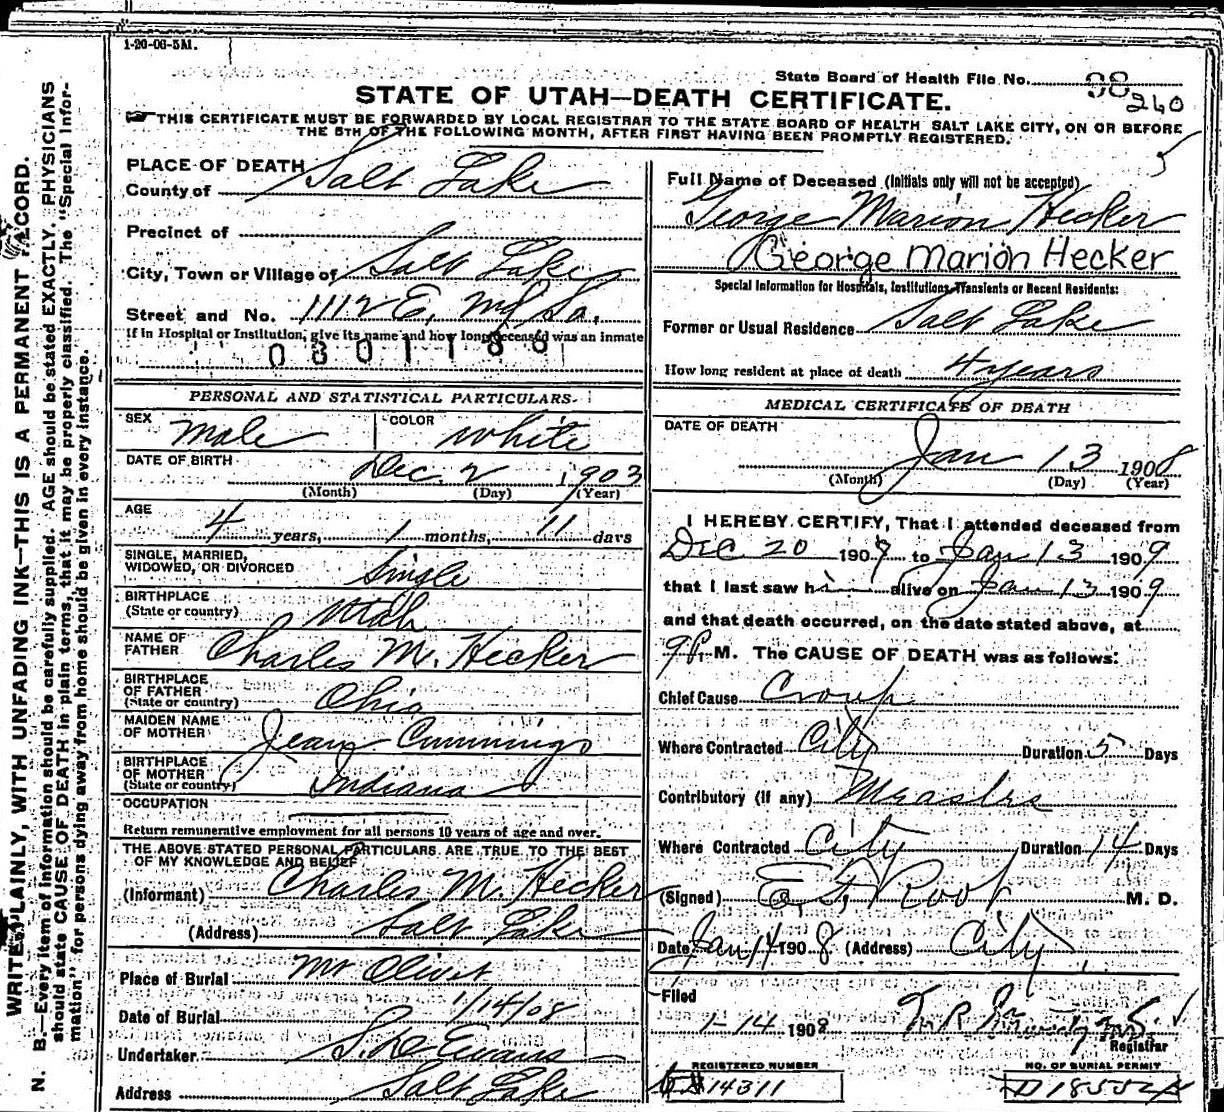 1-20-06-5M.
State Board of Health File No. 98
260
STATE OF UTAH—DEATH CERTIFICATE.
THIS CERTIFICATE MUST BE FORWARDED BY LOCAL REGISTRAR TO THE STATE BOARD OF HEALTH SALT LAKE CITY, ON OR BEFORE
THE 5TH OF THE FOLLOWING MONTH, AFTER FIRST HAVING BEEN PROMPTLY REGISTERED.
WRITE PLAINLY, WITH UNFADING INK—THIS IS A PERMANENT RECORD.
N. B.—Every item of information should be carefully supplied. AGE should be stated EXACTLY. PHYSICIANS
should state CAUSE OF DEATH in plain terms, that it may be properly classified. The "Special Infor-
mation" for persons dying away from home should be given in every instance.
PLACE OF DEATH
County of Salt Lake
Precinct of
City, Town or Village of Salt Lake
Street and No. 1112 E, 
If in Hospital or Institution, give its name and how long deceased was an inmate
0801188
PERSONAL AND STATISTICAL PARTICULARS.
SEX Male COLOR White
DATE OF BIRTH Dec. 2 1903
(Month) (Day) (Year)
AGE 4 years, 1 months, 11 days
SINGLE, MARRIED,
WIDOWED, OR DIVORCED Single
BIRTHPLACE
(State or country) Utah
NAME OF
FATHER Charles M. Hecker
BIRTHPLACE
OF FATHER
(State or country) Ohio
MAIDEN NAME
OF MOTHER Jean Cummings
BIRTHPLACE
OF MOTHER
(State or country) Indiana
OCCUPATION
Return remunerative employment for all persons 10 years of age and over.
THE ABOVE STATED PERSONAL PARTICULARS ARE TRUE TO THE BEST
OF MY KNOWLEDGE AND BELIEF
(Informant) Charles M. Hecker
(Address) Salt Lake
Place of Burial Mt Olivet
Date of Burial 1/14/08
Undertaker S. D. Evans
Address Salt Lake
Full Name of Deceased (Initials only will not be accepted)
George Marion Hecker
George Marion Hecker
Special Information for Hospitals, Institutions, Transients or Recent Residents:
Former or Usual Residence Salt Lake
How long resident at place of death 4 years
MEDICAL CERTIFICATE OF DEATH
DATE OF DEATH
Jan 13 1908
(Month) (Day) (Year)
I HEREBY CERTIFY, That I attended deceased from
Dec 20 1909 to Jan 13 1909
that I last saw him alive on Jan 13 1909
and that death occurred, on the date stated above, at
9 P. M. The CAUSE OF DEATH was as follows:
Chief Cause Croup
Where Contracted City Duration 5 Days
Contributory (if any) Measles
Where Contracted City Duration 14 Days
(Signed) E. F. Root M. D.
Date Jan 14 1908 (Address) City
Filed
1-14 1908
Registrar
REGISTERED NUMBER
14311
NO. OF BURIAL PERMIT